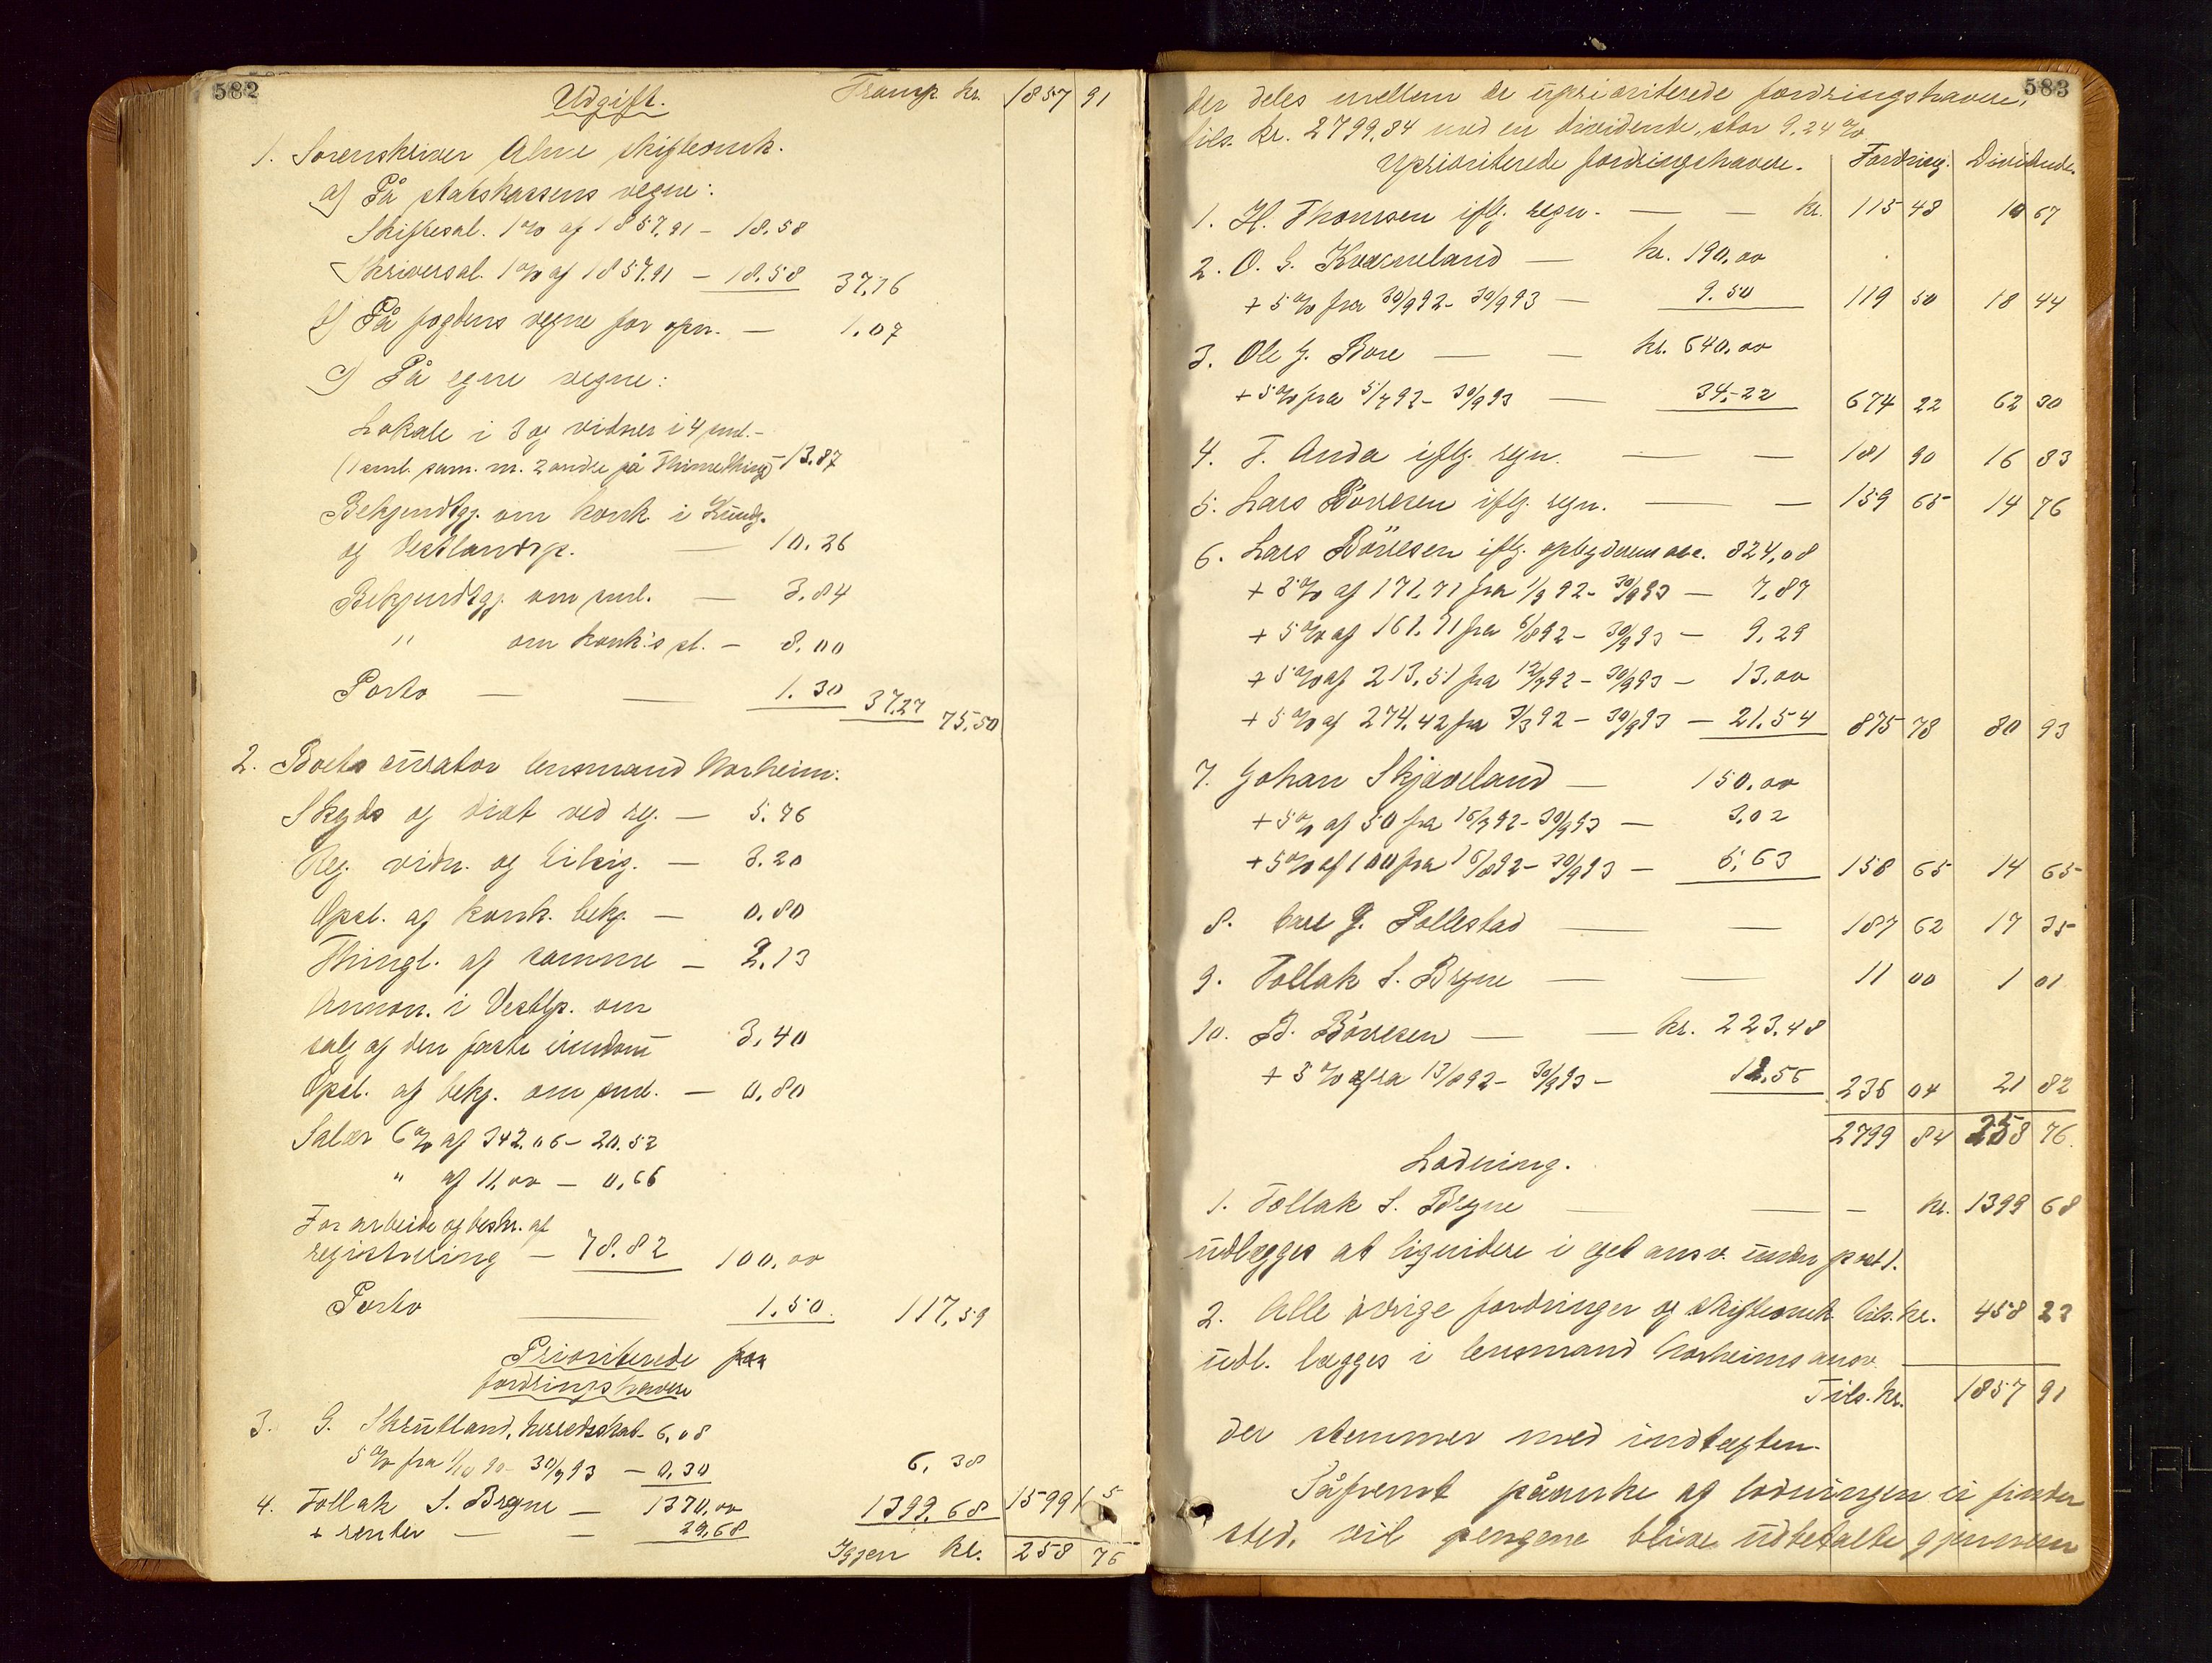 582
Udgift. Transp. kr. 1857 91
1. Sorenskriver Alme skifteomk.
a) På statskassens vegne:
Skiftesal. 1 % af 1857.91 – 18.58
Skriversal. 1 % af 1857.91 – 18.58 37.16
b) På fogdens vegne for opn. — 1.07
c) På egne vegne:
Lokale i 3 og vidner i 4 sml. –
(1 sml. sam. m. 2 andre på Thimething) – 13.87
Bekjendtgj. om konk. i Kundg.
og Vestlandsp. — 10.26
Bekjendtgj. om sml. — 3.84
" om konk:s sl. – 8.00
Porto — — 1.30 37.27 75.50
2. Boets curator lensmand Norheim:
Skyds og diæt ved reg. — 5.76
Reg. vidn. og likvig. — 3.20
Opsl. af konk. bekj. — 0.80
Thingl. af samme — 2.13
Annon. i Vestlp. om
salg af den faste eiendom 3.40
Opsl. af bekj. om sml. — 0.80
Salær 6 % af 342.06 – 20.52
" af 11.00 – 0.66
For arbeide og beskr. af
registrering – 78.82 100.00
Porto — 1.50. 117.59
Prioriterede
fordringshavere
3. G. Skrutland, herredsskat – 6.08
5 % fra 1/10 90 – 30/9 93 – 0.30 6.38
4. Tollak S. Bryne — 1370.00 1399.68 1599 15
+ renter — — 29.68
Igjen kr. 258 76
583
der deles mellem de uprioriterede fordringshavere,
tils. kr. 2799.84 med en dividende, stor 9.24 %
Uprioriterede fordringshavere. Fordring. Dividende.
1. H. Thomsen iflg. regn. — — kr. 115 48 10 67
2. O. G. Kværneland — kr. 190.00
+ 5 % fra 30/9 92 – 30/9 93 — 9.50 119 50 18 44
3. Ole G. Bore — — kr. 640.00
+ 5 % fra 5/7 92 – 30/9 93 — 34.22 674 22 62 30
4. T. Anda iflg. regn. — — 181 90 16 83
5. Lars Börresen iflg. regn. — — 159 65 14 76
6. Lars Börresen iflg. 824.08
+ 5 % af 171.71 fra 1/9 92 – 30/9 93 – 7.87
+ 5 % af 161.71 fra 6/8 92 – 30/9 93 – 9.29
+ 5 % af 213.51 fra 12/7 92 – 30/9 93 – 13.00
+ 5 % af 274.42 fra 3/3 92 – 30/9 93 – 21.54 875 78 80 93
7. Johan Skjæveland — 150.00
+ 5 % af 50 fra 16/7 92 – 30/9 93 — 3.02
+ 5 % af 100 fra 16/8 92 – 30/9 93 — 5.63 158 65 14 65
8. G. Pollestad — — 187 62 17 35
9. Tollak S. Bryne — — 11 00 1 01
10. B. Börresen — — kr. 223.48
+ 5 % fra 13/8 92 – 30/9 93 – 12.56 236 04 21 82
2799 84 258 76.
Lodning.
1. Tollak S. Bryne — — – kr. 1399 68
udlægges at liqvidere i eget ansv. under post 1.
2. Alle övrige fordringer og skifteomk. tils. kr. 458 23
udl. lægges i lensmand Norheims ansv.
Tils. kr. 1857 91
der stemmer med indtægten.
Såfremt påanke af lodningen ei finder
sted, vil pengene blive udbetalte gjennem